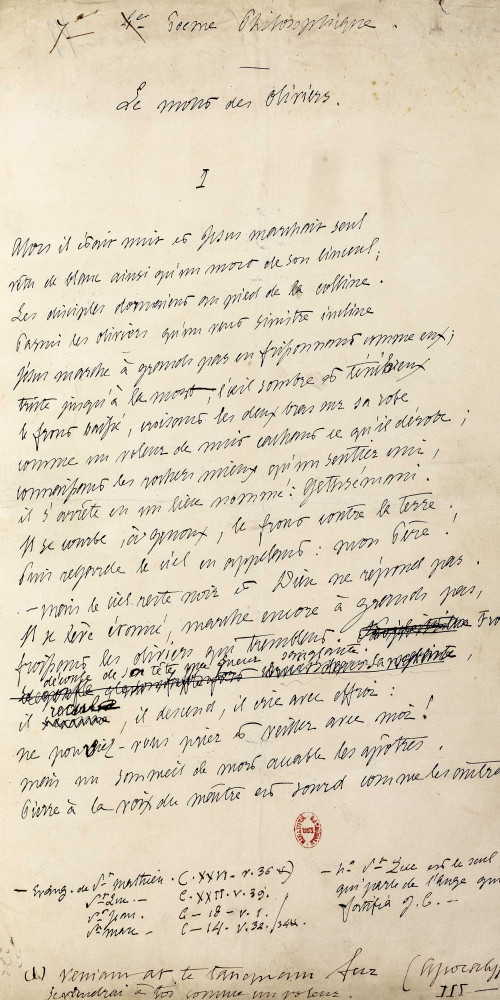 7e 4e Poeme Philosophique.
Le mont des oliviers.
I
Alors il était nuit et Jésus marchait seul
vêtu de blanc ainsi qu'un mort de son linceul;
Les disciples dormaient au pied de la colline.
Parmi les oliviers qu'un vent sinistre incline
Jésus marche à grands pas en frissonnant comme eux;
triste jusqu'à la mort, l'œil sombre et ténébreux
le front baissé, croisant les deux bras sur sa robe
comme un voleur de nuit cachant ce qu'il dérobe;
connaissant les rochers mieux qu'un sentier uni,
il s'arrête en un lieu nommé: Gethsémani.
Il se courbe, à genoux, le front contre la terre.
Puis regarde le ciel en appelant: mon Père!
— mais le ciel reste noir et Dieu ne répond pas.
Il se lève étonné, marche encore à grands pas,
froissant les oliviers qui tremblent. Froi
découle de sa tête une sueur sanglante
il recule, il descend, il crie avec effroi:
ne pouviez-vous prier et veiller avec moi!
mais un sommeil de mort accable les apôtres.
Pierre à la voix du maître est sourd comme les autre
— Evang. de St mathieu. C. XXVI - v. 36
St Luc. — C. XXII. v. 39.
St Jean. C - 18 - v. 1.
St marc - C - 14. v. 32.
— St Luc est le seul
qui parle de l'ange qui
fortifia J. C. —
(1) veniam ad te tanquam fur (apocalyp
je viendrai à toi comme un voleur. III